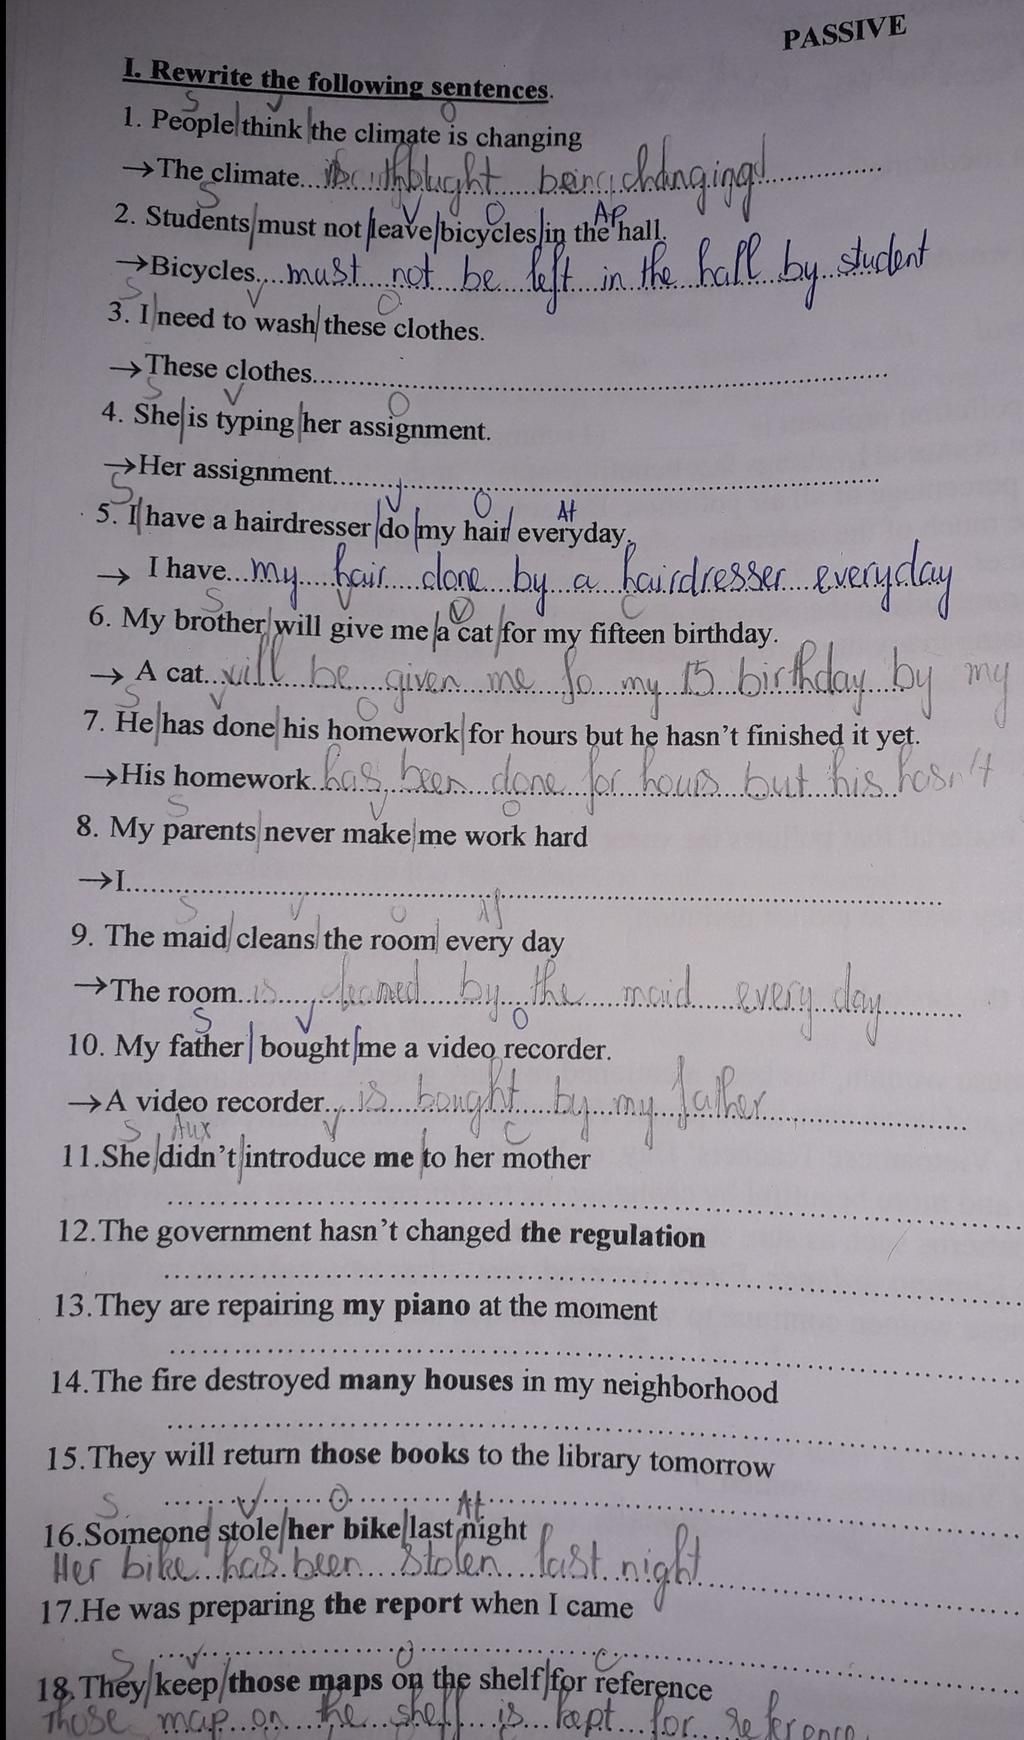 PASSIVE
I. Rewrite the following sentences.
S V O
1. People think the climate is changing
→The climate... thought being changing
S V O AP
2. Students must not leave bicycles in the hall.
→Bicycles... must not be left in the hall by student
S V O
3. I need to wash these clothes.
→These clothes...
S V O
4. She is typing her assignment.
→Her assignment...
S V O At
5. I have a hairdresser do my hair everyday.
→ I have... my hair done by a hairdresser everyday
S V O C
6. My brother will give me a cat for my fifteen birthday.
→ A cat... will be given me fo my 15 birthday by my
S V O
7. He has done his homework for hours but he hasn't finished it yet.
→His homework has been done for hours but his hasn't
S V O
8. My parents never make me work hard
→I...
S V O Af
9. The maid cleans the room every day
→The room... is cleaned by the maid every day
S V O
10. My father bought me a video recorder.
→A video recorder... is bought by my father
S Aux V C
11.She didn't introduce me to her mother
12.The government hasn't changed the regulation
13.They are repairing my piano at the moment
14.The fire destroyed many houses in my neighborhood
15.They will return those books to the library tomorrow
S V O At
16.Someone stole her bike last night
Her bike has been stolen last night
17.He was preparing the report when I came
S V O C
18.They keep those maps on the shelf for reference
Those map on the shelf is kept for reference